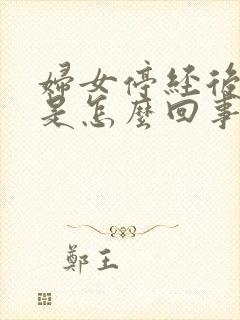 婦女停経後
是怎麼回事
鄭王